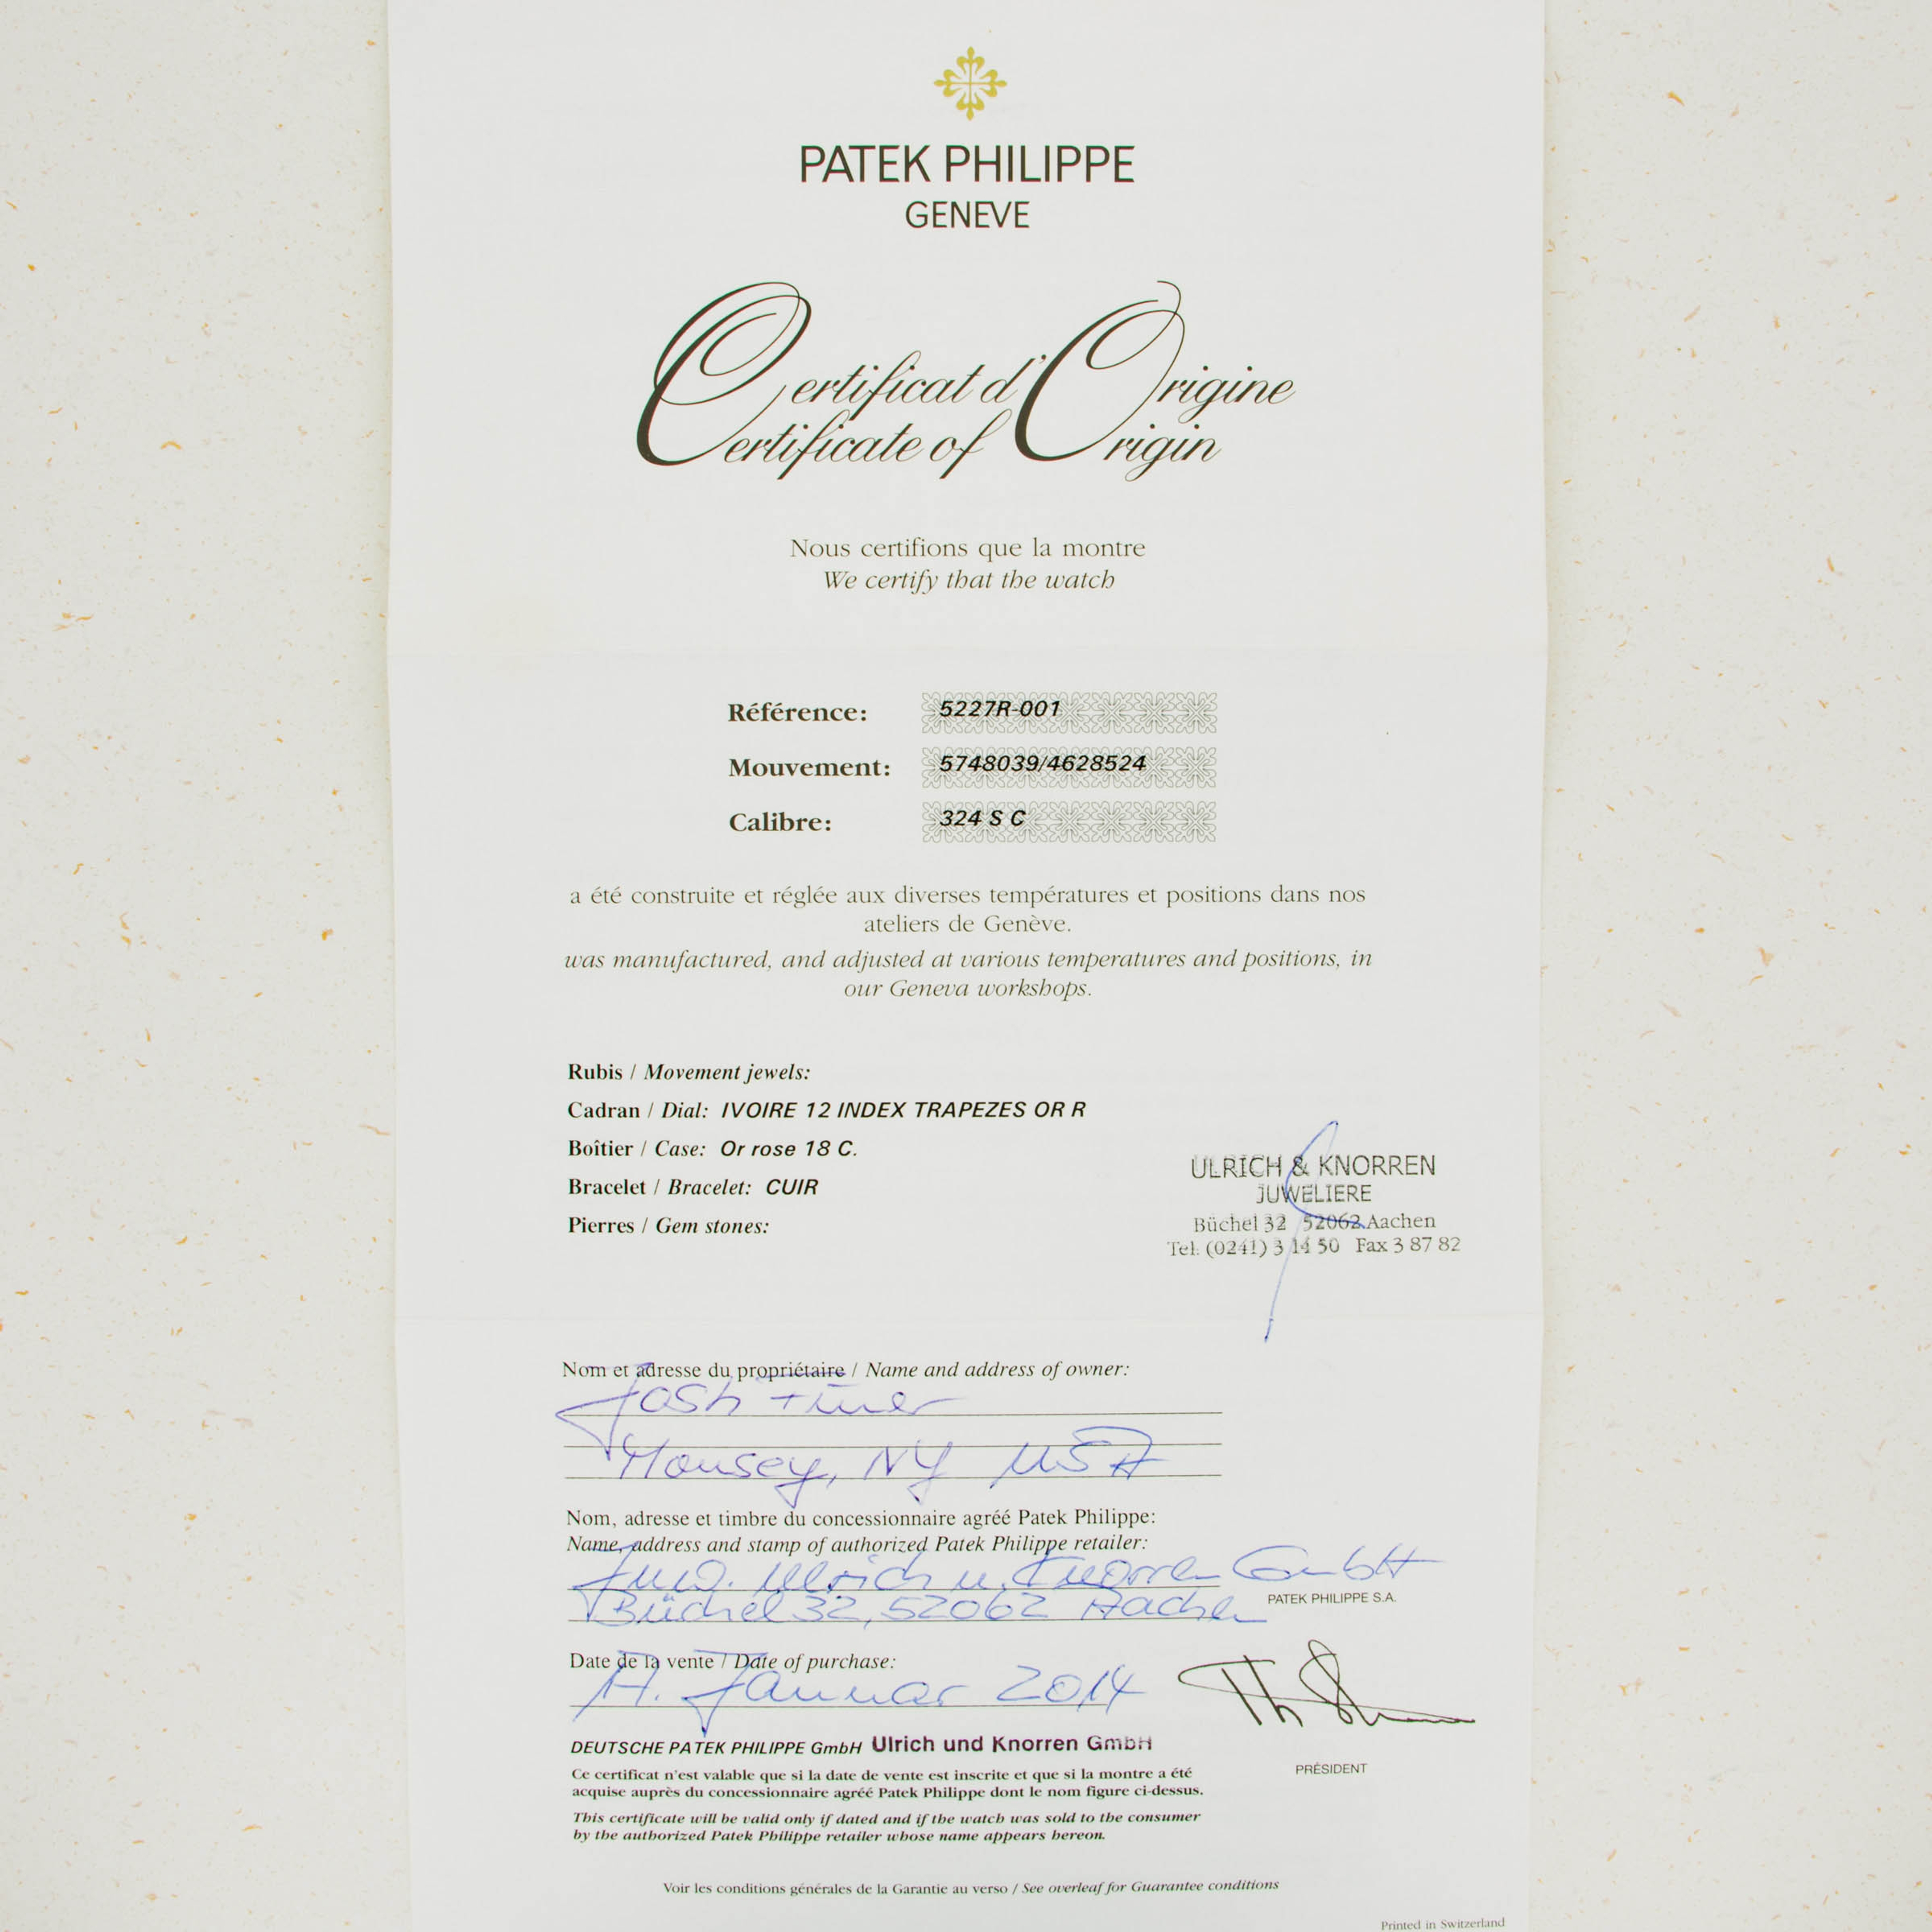 PATEK PHILIPPE
GENEVE
Certificat d'Origine
Certificate of Origin
Nous certifions que la montre
We certify that the watch
Référence: 5227R-001
Mouvement: 5748039/4628524
Calibre: 324 S C
a été construite et réglée aux diverses températures et positions dans nos
ateliers de Genève.
was manufactured, and adjusted at various temperatures and positions, in
our Geneva workshops.
Rubis / Movement jewels:
Cadran / Dial: IVOIRE 12 INDEX TRAPEZES OR R
Boîtier / Case: Or rose 18 C.
Bracelet / Bracelet: CUIR
Pierres / Gem stones:
ULRICH & KNORREN
JUWELIERE
Büchel 32 52062 Aachen
Tel: (0241) 3 14 50 Fax 3 87 82
Nom et adresse du propriétaire / Name and address of owner:
Josh
Monsey, NY USA
Nom, adresse et timbre du concessionnaire agréé Patek Philippe:
Name, address and stamp of authorized Patek Philippe retailer:
Juw. Ulrich u. Knorren GmbH
Büchel 32, 52062 Aachen
PATEK PHILIPPE S.A.
Date de la vente / Date of purchase:
Januar 2014
DEUTSCHE PATEK PHILIPPE GmbH Ulrich und Knorren GmbH
PRÉSIDENT
Ce certificat n'est valable que si la date de vente est inscrite et que si la montre a été
acquise auprès du concessionnaire agréé Patek Philippe dont le nom figure ci-dessus.
This certificate will be valid only if dated and if the watch was sold to the consumer
by the authorized Patek Philippe retailer whose name appears hereon.
Voir les conditions générales de la Garantie au verso / See overleaf for Guarantee conditions
Printed in Switzerland